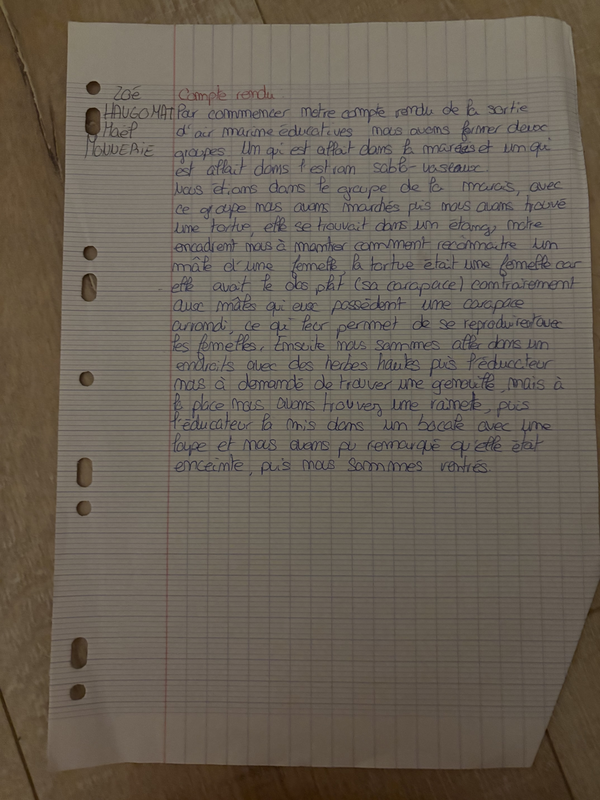 Zoé
HAUGOMAT
Maël
MONNERAIE
Compte rendu
Par commencer notre compte rendu de la sortie
d'air marime éducatives nous avons former deux
groupes Un qui est allait dans la marées et un qui
est allait dans l'estran sablo-vaseaux.
Nous étions dans le groupe de la marais, avec
ce groupe nous avons marchés puis nous avons trouvé
une tortue, elle se trouvait dans un étang, notre
encadrent nous à montrer comment reconnaitre un
mâle d'une femelle, la tortue était une femelle car
elle avait le dos plat (sa carapace) contrairement
aux mâles qui eux possèdent une carapace
arrondi, ce qui leur permet de se reproduire avec
les femelles. Ensuite nous sommes aller dans un
endroits avec des herbes hautes puis l'éducateur
nous à demandé de trouver une grenouille, mais à
la place nous avons trouver une rainete, puis
l'éducateur la mis dans un bocale avec une
loupe et nous avons pu remarqué qu'elle était
enceinte, puis nous sommes rentrés.